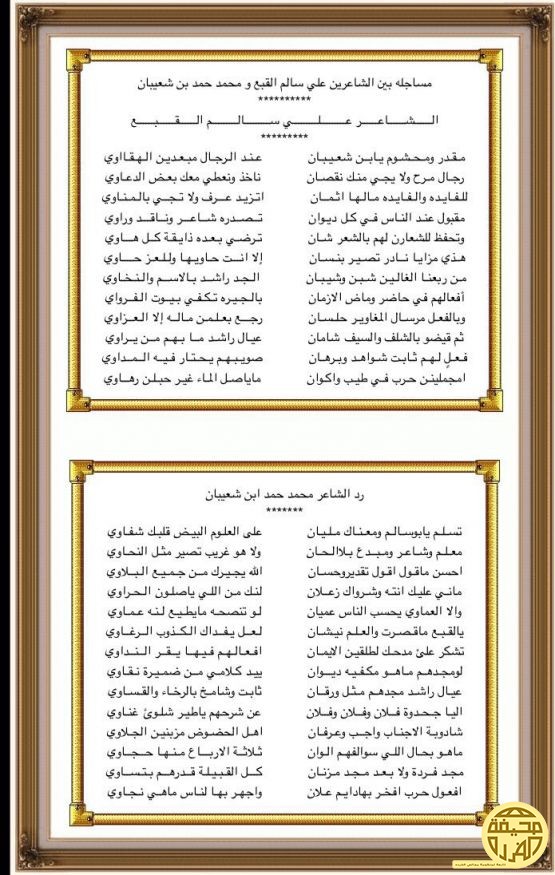 مساجله بين الشاعرين علي سالم القبع و محمد حمد بن شعيبان
**********
الشاعر علي سالم القبع
*********
مقدر ومحشوم يابن شعيبان عند الرجال مبعدين الهقااوي
رجال مرح ولا يجي منك نقصان ناخذ ونعطي معك بعض الدعاوي
للفايده والفايده مالها اثمان اتزيد عرف ولا تجي بالمناوي
مقبول عند الناس في كل ديوان تصدره شاعر وناقد وراوي
وتحفظ للشعارن لهم بالشعر شان ترضي بعده ذايقة كل هاوي
هذي مزايا نادر تصير بنسان إلا انت حاويها وللعز حاوي
من ربعنا الغالين شبن وشيبان الجد راشد بالاسم والنخاوي
أفعالهم في حاضر وماض الازمان بالجيره تكفي بيوت الفرواي
وبالفعل مرسال المغاوير حلسان رجع بعلمن ماله إلا العزاوي
ثم قيضو بالشلف والسيف شامان عيال راشد ما بهم من يراوي
فعلٍ لهم ثابت شواهد وبرهان صويبهم يحتار فيه المداوي
امجملينن حرب في طيب واكوان ماياصل الماء غير حبلن رهاوي
رد الشاعر محمد حمد ابن شعيبان
*******
تسلم يابوسالم ومعناك مليان على العلوم البيض قلبك شفاوي
معلم وشاعر ومبدع بلاالحان ولا هو غريب تصير مثل النحاوي
احسن ماقول اقول تقديروحسان الله يجيرك من جميع البلاوي
ماني عليك انته وشرواك زعلان لنك من اللي ياصلون الحراوي
والا العماوي يحسب الناس عميان لو تنصحه مايطيع لنه عماوي
يالقبع ماقصرت والعلم نيشان لعل يفداك الكذوب الرغاوي
تشكر علئ مدحك لطلقين الايمان افعالهم فيها يقر النداوي
لومجدهم ماهو مكفيه ديوان ييد كلامي من ضميرة نقاوي
عيال راشد مجدهم مثل ورقان ثابت وشامخ بالرخاء والقساوي
اليا جحدوة فلان وفلان وفلان عن شرحهم ياطير شلوئ غناوي
شادوية الاجناب واجب وعرفان اهل الحضوض مزبنين الجلاوي
ماهو بحال اللي سوالفهم الوان ثلاثة الارباع منها حجاوي
مجد فردة ولا بعد مجد مزنان كل القبيلة قدرهم بتساوي
افعول حرب افخر بهادايم علان واجهر بها لناس ماهي نجاوي
صحيفة